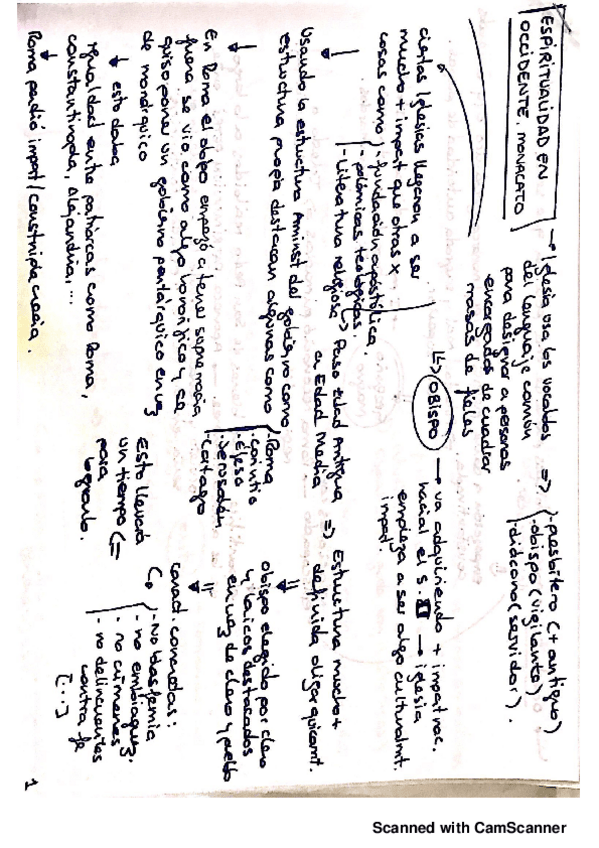 ESPIRITUALIDAD EN
OCCIDENTE. MONACATO
→ Iglesia usa los vocablos
del lenguaje común
para designar a personas
encargadas de cuadrar
masas de fieles
=> - presbítero (+ antiguo)
- obispo (vigilante)
- diácono (servidor).
ciertas Iglesias llegaron a ser
mucho + impat que otras x
cosas como - fundación apostólica.
- polémicas teológicas.
- Literatura religiosa
OBISPO → va adquiriendo + impat nac.
hacia el s. II → iglesia
empieza a ser algo culturalmt.
impat.
↳ Paso Edad Antigua
a Edad Media => Estructura mucho +
definida oligarquicamt.
Usando la estructura Aminst del gobierno como
estructura propia destacan algunas como
- Roma
- Corintio
- Éfeso
- Jerusalén
- Cartago
obispo elegido por clero
y laicos destacados
en vez de clero y pueblo
En Roma el obispo empezó a tener supremacía
fuera se vio como algo
quiso poner un gobierno pentárquico en vez
de monárquico
caract. concretas:
- No blasfemia
- no embriaguez.
- no crímenes
- no delincuentes
contra fe
[...]
↓ esto daba
igualdad entre patriarcas como Roma,
constantinopla, Alejandría, ...
Esto llevará
un tiempo
para
lograrlo.
Roma perdió impat / constnopla crecía.
1
Scanned with CamScanner